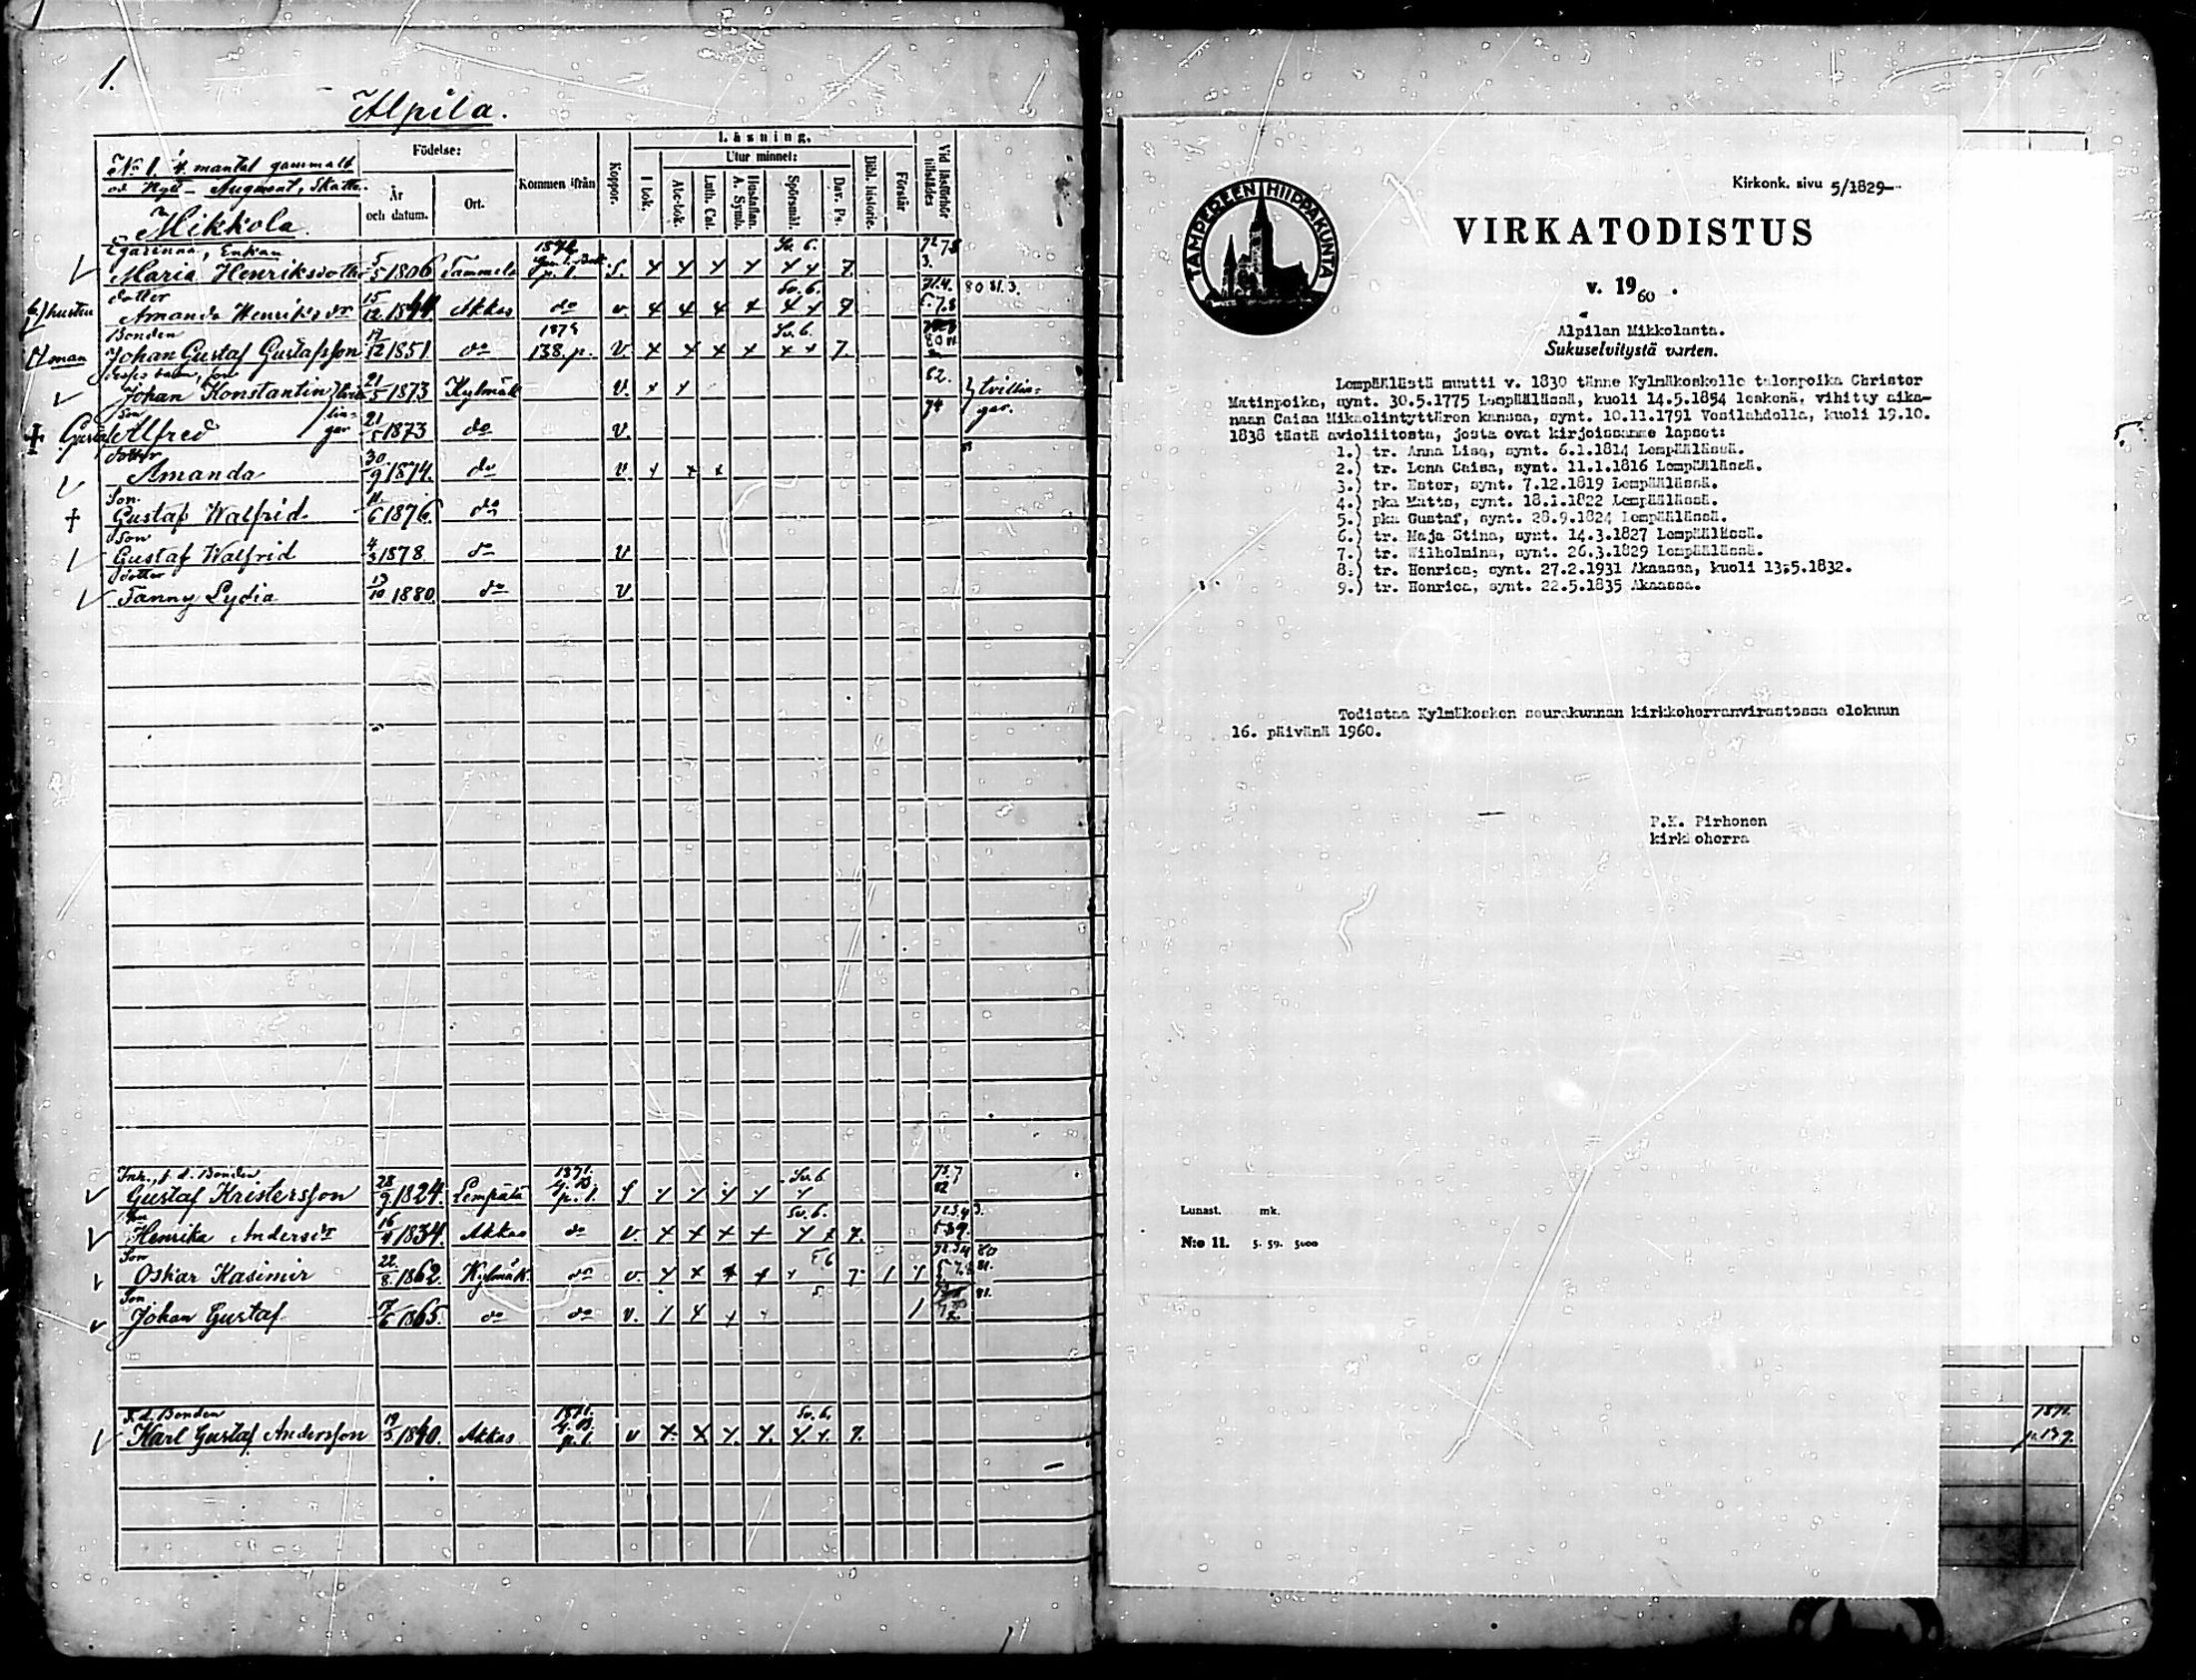 1.
Alpila.
No 1. mantal gammalt
Augment, Skatte.
Mikkola.
Födelse:
År och datum.
Ort.
Kommen ifrån
Koppor.
Läsning.
I bok.
Utur minnet:
Abc-bok.
Luth. Cat.
Hustaflan. A. Symb.
Spörsmål.
Dav. Ps.
Bibl. historie.
Förstår
Vid läsförhör tillstädes
Egarinna, Enkan
Maria Henriksdotter 5/5 1806 Tammela p. 1. f.
dotter
hustru Amanda Henriksdr 15/12 1844 Akkas do v 80 81. 3.
Bonden
man Johan Gustaf Gustafsson 17/12 1851. do 1878 138. p. V.
son
Johan Konstantin 21/5 1873 Kylmäk V. 82. tvillin-
gar.
Son
Gustaf Alfred 21/5 1873 do V. 74
dotter
Amanda 30/9 1874. do V.
Son.
Gustaf Walfrid. 11/6 1876. do
Son
Gustaf Walfrid 4/3 1878. do V
dotter
Fanny Lydia 13/10 1880. do V
Inh., f. d. Bonden
Gustaf Kristersson 28/9 1824. Lempälä 1871. p. 1. f
Henrika Andersdr 16/4 1834. Akkas do v.
Son
Oskar Kasimir 22/8. 1862. Kylmäk. do v.
Son
Johan Gustaf 7/6 1865. do do v.
F. d. Bonden
Karl Gustaf Andersson 19/5 1840. Akkas 1871. p. 1. v
TAMPEREEN HIIPPAKUNTA
Kirkonk. sivu 5/1829—
VIRKATODISTUS
v. 1960.
Alpilan Mikkolasta.
Sukuselvitystä varten.
Lempäälästä muutti v. 1830 tänne Kylmäkoskelle talonpoika Christer
Matinpoika, synt. 30.5.1775 Lempäälässä, kuoli 14.5.1854 leskenä, vihitty aika-
naan Caisa Mikaelintyttären kanssa, synt. 10.11.1791 Vesilahdella, kuoli 19.10.
1838 tästä avioliitosta, josta ovat kirjoissamme lapset:
1.) tr. Anna Lisa, synt. 6.1.1814 Lempäälässä.
2.) tr. Lena Caisa, synt. 11.1.1816 Lempäälässä.
3.) tr. Ester, synt. 7.12.1819 Lempäälässä.
4.) pka Matts, synt. 18.1.1822 Lempäälässä.
5.) pka Gustaf, synt. 28.9.1824 Lempäälässä.
6.) tr. Maja Stina, synt. 14.3.1827 Lempäälässä.
7.) tr. Wilhelmina, synt. 26.3.1829 Lempäälässä.
8.) tr. Henrica, synt. 27.2.1931 Akaassa, kuoli 13.5.1832.
9.) tr. Henrica, synt. 22.5.1835 Akaassa.
Todistaa Kylmäkosken seurakunnan kirkkoherranvirastossa elokuun
16. päivänä 1960.
P.K. Pirhonen
kirkkoherra
Lunast. mk.
N:o 11. 5. 59. 5000
1871.
p. 139.